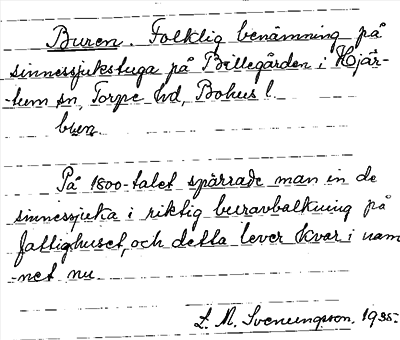 Buren. Folklig benämning på
sinnessjukstuga på Billegården i Hjär-
-tum sn, Torpe hd, Bohus l.
buren
På 1800-talet spärrade man in de
sinnessjuka i riktig buravbalkning på
fattighuset, och detta lever kvar i nam
-net nu
L. M. Svenungsson. 1935.